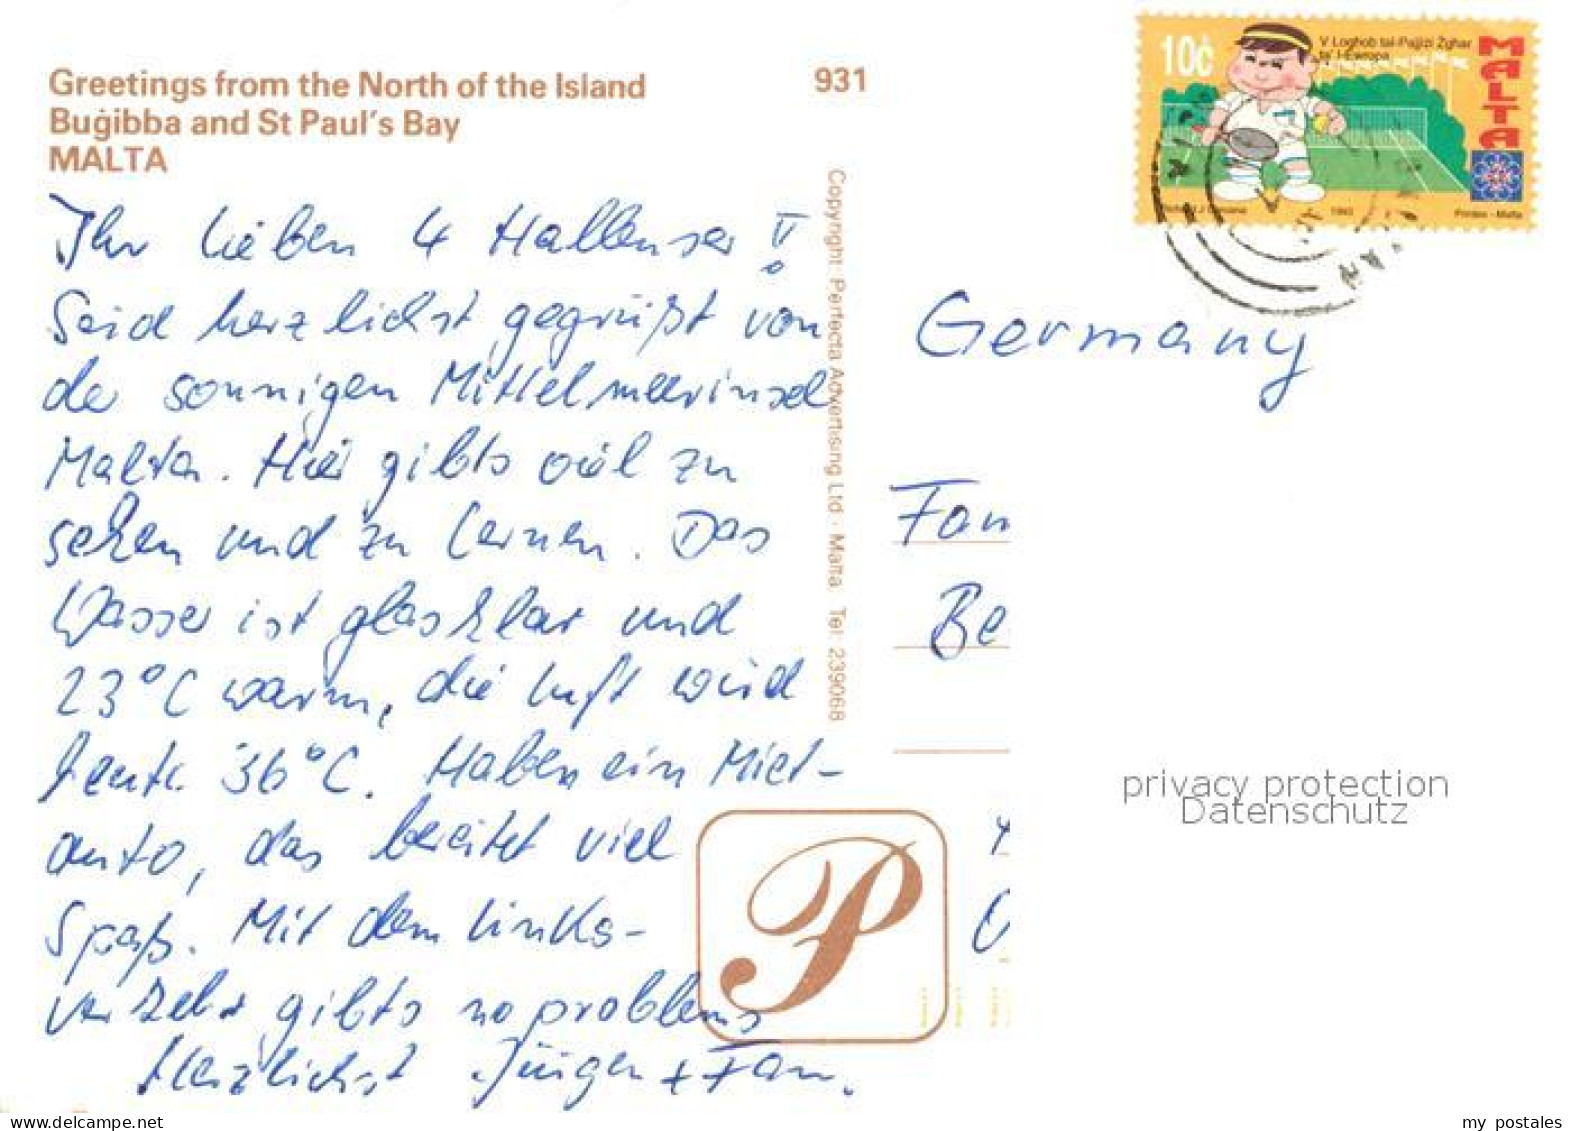 Greetings from the North of the Island
Buġibba and St Paul's Bay
MALTA
931
10c
V Logħob tal-Pajjiżi Żgħar
ta' l-Ewropa
MALTA
1993
Printex - Malta
Ihr lieben 4 Hallenser!
Seid herzlichst gegrüßt von
der sonnigen Mittelmeerinsel
Malta. Hier gibts viel zu
sehen und zu lernen. Das
Wasser ist glasklar und
23°C warm, die Luft wird
heute 36°C. Haben ein Miet-
auto, das bereitet viel
Spaß. Mit dem Links-
verkehr gibts no problems
Herzlichst Jürgen + Fam.
Copyright: Perfecta Advertising Ltd · Malta. Tel: 239068
Germany
Fam
Be
privacy protection
Datenschutz
P
my postales